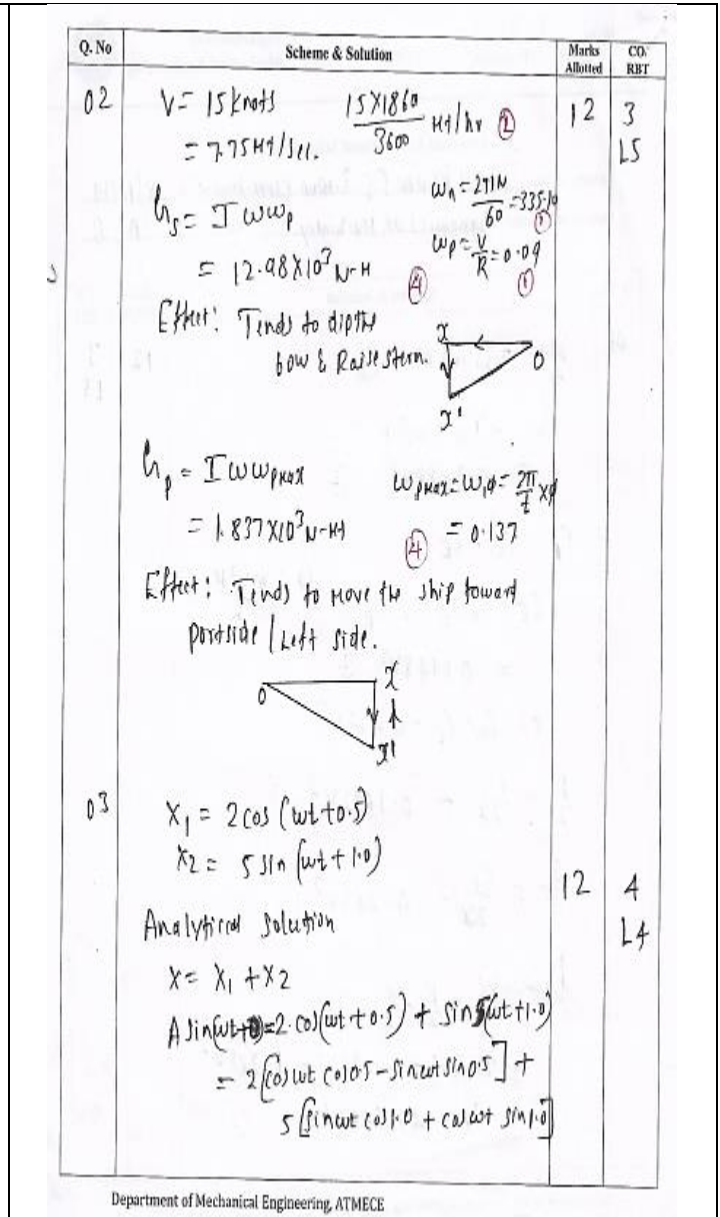 Q. No Scheme & Solution Marks Allotted CO/ RBT
02 V = 15 knots 15X1860 / 3600 Mt/hr ② 12 3
= 7.75 Mt/sec. L5
Gs = I ω ωp ωn = 2πN / 60 = 335.10 ①
= 12.98X10³ N-M ④ ωp = V / R = 0.09 ①
Effect: Tends to dip the
bow & Raise stern.
x o
x'
Gp = I ω ωpmax ωpmax = ω1φ = 2π / t Xφ
= 1.837X10³ N-Mt ④ = 0.137
Effect: Tends to move the ship toward
portside / Left side.
o x
x'
03 X1 = 2 cos (ωt + 0.5)
X2 = 5 sin (ωt + 1.0)
12 4
Analytical Solution L4
X = X1 + X2
= 2.cos(ωt + 0.5) + sin5(ωt + 1.0)
= 2[cosωt cos0.5 - sinωt sin0.5] +
5[sinωt cos1.0 + cosωt sin1.0]
Department of Mechanical Engineering, ATMECE